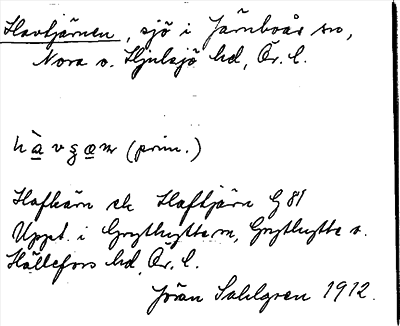 Havtjärnen, sjö i Järnboås sn,
Nora o. Hjulsjö hd, Ör. l.
(prim.)
Hafkärn ek Haftjärn G 81
Uppt. i Grythyttem, Grythytte o.
Hällefors hd, Ör. l.
Jöran Sahlgren 1912.